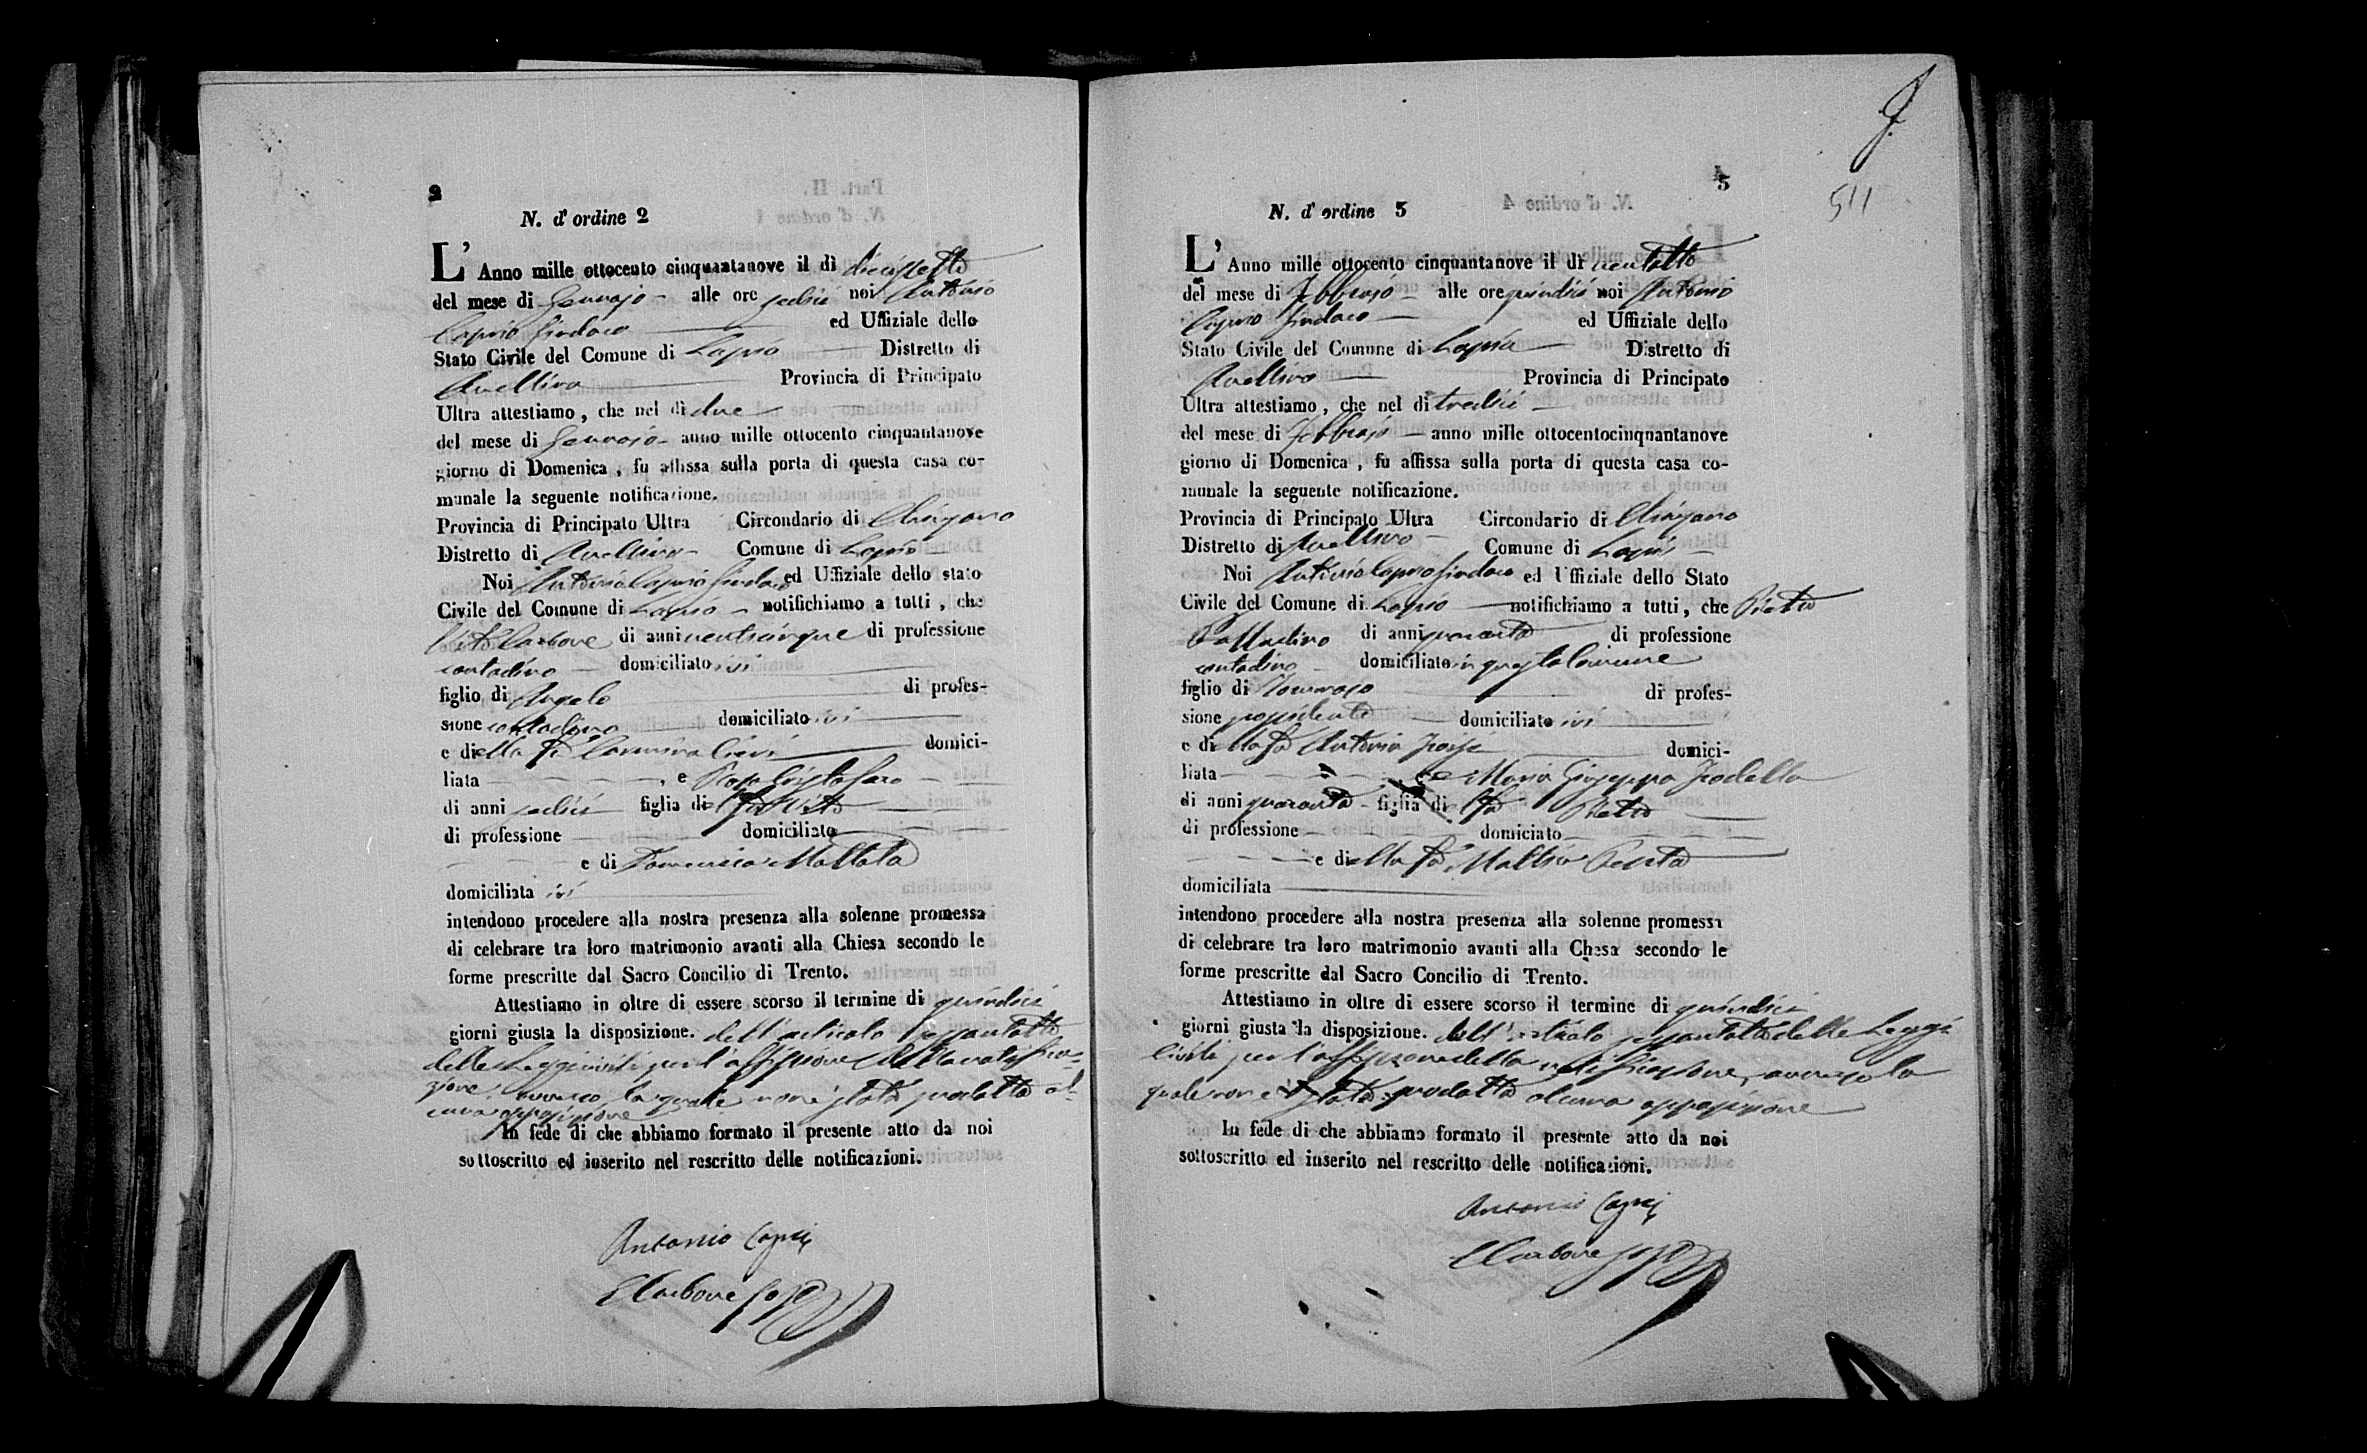 2
N. d' ordine 2
L' Anno mille ottocento cinquantanove il dì diciassette
del mese di Gennajo alle ore sedici noi Antonio
Caprio Sindaco ed Uffiziale dello
Stato Civile del Comune di Lapio Distretto di
Avellino Provincia di Principato
Ultra attestiamo, che nel dì due
del mese di Gennajo anno mille ottocento cinquantanove
giorno di Domenica, fu affissa sulla porta di questa casa co-
munale la seguente notificazione.
Provincia di Principato Ultra Circondario di Chiusano
Distretto di Avellino Comune di Lapio
Noi Antonio Caprio Sindaco ed Uffiziale dello stato
Civile del Comune di Lapio notifichiamo a tutti, che
Vito Carbone di anni venticinque di professione
contadino domiciliato ivi
figlio di Angelo di profes-
sione contadino domiciliato ivi
e di ella fu Carmina domici-
liata e Rosa
di anni sedici figlia di el fu Vito
di professione domiciliato
e di Domenica
domiciliata ivi
intendono procedere alla nostra presenza alla solenne promessa
di celebrare tra loro matrimonio avanti alla Chiesa secondo le
forme prescritte dal Sacro Concilio di Trento.
Attestiamo in oltre di essere scorso il termine di quindici
giorni giusta la disposizione. dell'articolo sessantotto
delle Leggi civili per l'affissione della notifica-
zione, avverso la quale non è stata prodotta al-
cuna opposizione
In fede di che abbiamo formato il presente atto da noi
sottoscritto ed inserito nel rescritto delle notificazioni.
Antonio Caprio
Carbone
3
511
N. d' ordine 3
L' Anno mille ottocento cinquantanove il dì ventotto
del mese di Febbrajo alle ore quindici noi Antonio
Caprio Sindaco ed Uffiziale dello
Stato Civile del Comune di Lapio Distretto di
Avellino Provincia di Principato
Ultra attestiamo, che nel dì tredici
del mese di Febbrajo anno mille ottocentocinquantanove
giorno di Domenica, fu affissa sulla porta di questa casa co-
munale la seguente notificazione.
Provincia di Principato Ultra Circondario di Chiusano
Distretto di Avellino Comune di Lapio
Noi Antonio Caprio Sindaco ed Uffiziale dello Stato
Civile del Comune di Lapio notifichiamo a tutti, che Pietro
Palladino di anni quaranta di professione
contadino domiciliato in questo Comune
figlio di Tommaso di profes-
sione domiciliato ivi
e di ella fu Antonia domici-
liata e Maria Giuseppa
di anni quaranta figlia di el fu Pietro
di professione domiciato
e di ella fu
domiciliata
intendono procedere alla nostra presenza alla solenne promessa
di celebrare tra loro matrimonio avanti alla Chesa secondo le
forme prescritte dal Sacro Concilio di Trento.
Attestiamo in oltre di essere scorso il termine di quindici
giorni giusta la disposizione. dell'articolo sessantotto delle Leggi
Civili per l'affissione della notificazione, avverso la
quale non è stata prodotta alcuna opposizione
In fede di che abbiamo formato il presente atto da noi
sottoscritto ed inserito nel rescritto delle notificazioni.
Antonio Caprio
Carbone